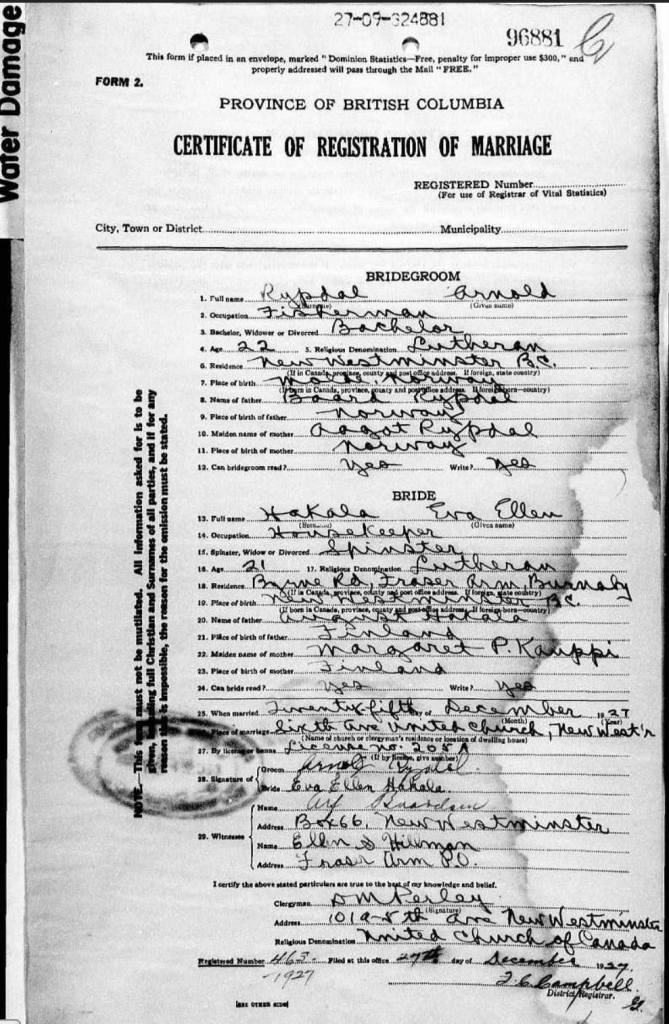 Water Damage
27-09-324881
96881
This form if placed in an envelope, marked "Dominion Statistics—Free, penalty for improper use $300," and
properly addressed will pass through the Mail "FREE."
FORM 2.
PROVINCE OF BRITISH COLUMBIA
CERTIFICATE OF REGISTRATION OF MARRIAGE
REGISTERED Number
(For use of Registrar of Vital Statistics)
City, Town or District Municipality
BRIDEGROOM
1. Full name Rypdal Arnold
(Surname) (Given name)
2. Occupation Fisherman
3. Bachelor, Widower or Divorced Bachelor
4. Age 22 5. Religious Denomination Lutheran
6. Residence New Westminster B.C.
(If in Canada, province, county and post office address. If foreign, state country)
7. Place of birth Norway
(If born in Canada, province, county and post office address. If foreign born—country)
8. Name of father Baard Rypdal
9. Place of birth of father Norway
10. Maiden name of mother Aagot Rypdal
11. Place of birth of mother Norway
12. Can bridegroom read? Yes Write? Yes
BRIDE
13. Full name Hakala Eva Ellen
(Surname) (Given name)
14. Occupation Housekeeper
15. Spinster, Widow or Divorced Spinster
16. Age 21 17. Religious Denomination Lutheran
18. Residence Byrne Rd, Fraser Arm, Burnaby
(If in Canada, province, county and post office address. If foreign, state country)
19. Place of birth New Westminster B.C.
(If born in Canada, province, county and post office address. If foreign born—country)
20. Name of father August Hakala
21. Place of birth of father Finland
22. Maiden name of mother Margaret P. Kauppi
23. Place of birth of mother Finland
24. Can bride read? Yes Write? Yes
25. When married Twenty-fifth day of December 1927
(Month) (Year)
26. Place of marriage Sixth Ave United Church, New West'r
(Name of church or clergyman's residence or location of dwelling house)
27. By license or banns License no. 205A
(If by license, give number)
28. Signature of Groom Arnold Rypdal.
Bride Eva Ellen Hakala.
29. Witnesses Name
Address Box 66, New Westminster
Name Ellen S Hillman
Address Fraser Arm P.O.
I certify the above stated particulars are true to the best of my knowledge and belief.
Clergyman
(Signature)
Address 1019-8th Ave New Westminster
Religious Denomination United Church of Canada
Registered Number 465- Filed at this office 27th day of December 1927
1927
J.C. Campbell.
District Registrar.
[SEE OTHER SIDE]
NOTE.—This form must not be mutilated. All information asked for is to be
given, including full Christian and Surnames of all parties, and if for any
reason this is impossible, the reason for the omission must be stated.